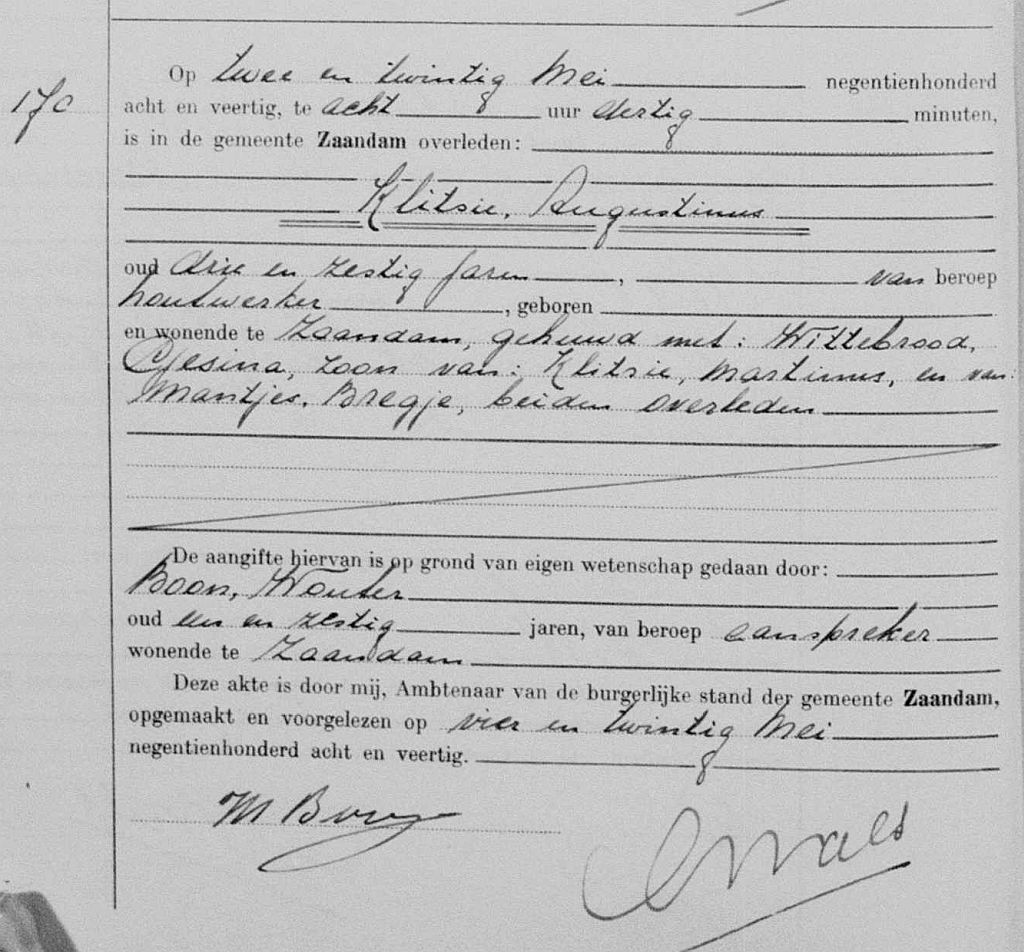 170
Op twee en twintig Mei negentienhonderd
acht en veertig, te acht uur dertig minuten,
is in de gemeente Zaandam overleden:
Klitsie, Augustinus
oud drie en zestig jaren, van beroep
houtwerker, geboren
en wonende te Zaandam, gehuwd met: Wittebrood,
Gesina, zoon van: Klitsie, Martinus, en van:
Mantjes, Bregje, beiden overleden
De aangifte hiervan is op grond van eigen wetenschap gedaan door:
Boon, Wouter
oud een en zestig jaren, van beroep aanspreker
wonende te Zaandam
Deze akte is door mij, Ambtenaar van de burgerlijke stand der gemeente Zaandam,
opgemaakt en voorgelezen op vier en twintig Mei
negentienhonderd acht en veertig.